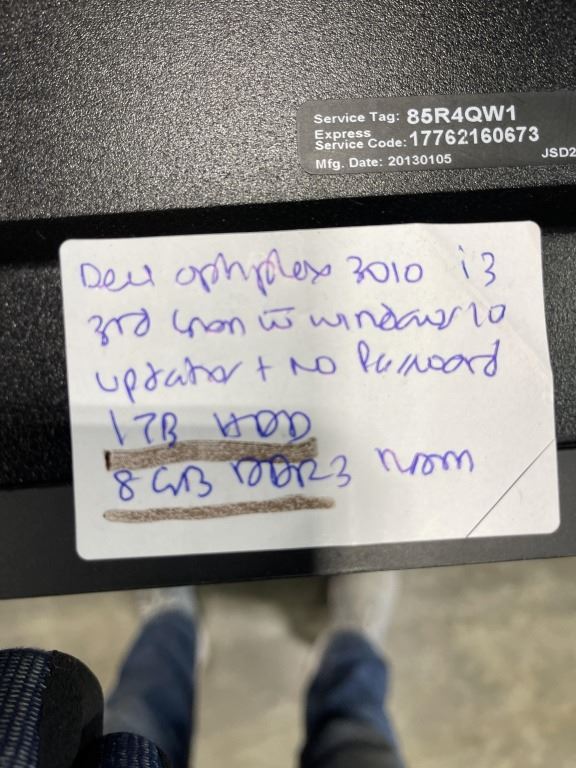 Service Tag: 85R4QW1
Express
Service Code: 17762160673
Mfg. Date: 20130105 JSD2
Dell optiplex 3010 i3
3rd Gen windows 10
updated + No Password
1 TB HDD
8 GB DDR3 Ram